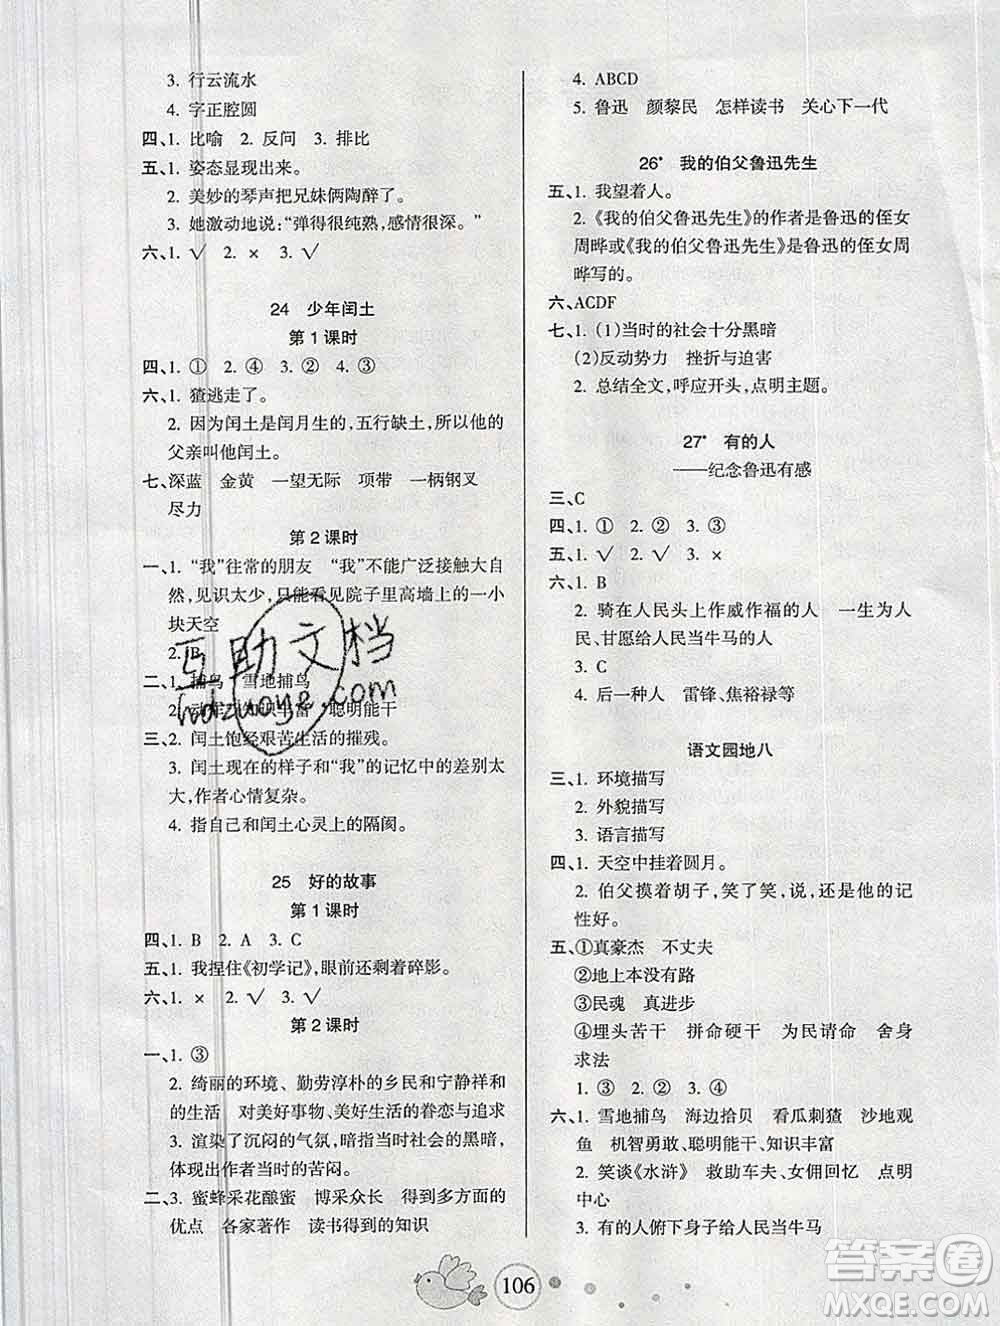 3. 行云流水
4. 字正腔圆
四、1. 比喻 2. 反问 3. 排比
五、1. 姿态显现出来。
2. 美妙的琴声把兄妹俩陶醉了。
3. 她激动地说：“弹得很纯熟，感情很深。”
六、1. √ 2. × 3. √
24 少年闰土
第1课时
四、1. ① 2. ④ 3. ② 4. ③
六、1. 猹逃走了。
2. 因为闰土是闰月生的，五行缺土，所以他的
父亲叫他闰土。
七、深蓝 金黄 一望无际 项带 一柄钢叉
尽力
第2课时
一、1. “我”往常的朋友 “我”不能广泛接触大自
然，见识太少，只能看见院子里高墙上的一小
块天空
2. B
二、1. 捕鸟 雪地捕鸟
2. 知识丰富、聪明能干
三、2. 闰土饱经艰苦生活的摧残。
3. 闰土现在的样子和“我”的记忆中的差别太
大，作者心情复杂。
4. 指自己和闰土心灵上的隔阂。
25 好的故事
第1课时
四、1. B 2. A 3. C
五、1. 我捏住《初学记》，眼前还剩着碎影。
六、1. × 2. √ 3. √
第2课时
一、1. ③
2. 绮丽的环境、勤劳淳朴的乡民和宁静祥和
的生活 对美好事物、美好生活的眷恋与追求
3. 渲染了沉闷的气氛，暗指当时社会的黑暗，
体现出作者当时的苦闷。
二、3. 蜜蜂采花酿蜜 博采众长 得到多方面的
优点 各家著作 读书得到的知识
4. ABCD
5. 鲁迅 颜黎民 怎样读书 关心下一代
26* 我的伯父鲁迅先生
五、1. 我望着人。
2.《我的伯父鲁迅先生》的作者是鲁迅的侄女
周晔或《我的伯父鲁迅先生》是鲁迅的侄女周
晔写的。
六、ACDF
七、1. (1)当时的社会十分黑暗
(2)反动势力 挫折与迫害
2. 总结全文，呼应开头，点明主题。
27* 有的人
——纪念鲁迅有感
三、C
四、1. ① 2. ② 3. ③
五、1. √ 2. √ 3. ×
六、1. B
2. 骑在人民头上作威作福的人 一生为人
民、甘愿给人民当牛马的人
3. C
4. 后一种人 雷锋、焦裕禄等
语文园地八
三、1. 环境描写
2. 外貌描写
3. 语言描写
四、1. 天空中挂着圆月。
2. 伯父摸着胡子，笑了笑，说，还是他的记
性好。
五、①真豪杰 不丈夫
②地上本没有路
③民魂 真进步
④埋头苦干 拼命硬干 为民请命 舍身
求法
1. ③ 2. ② 3. ④
六、1. 雪地捕鸟 海边拾贝 看瓜刺猹 沙地观
鱼 机智勇敢、聪明能干、知识丰富
2. 笑谈《水浒》 救助车夫、女佣回忆 点明
中心
3. 有的人俯下身子给人民当牛马
106
互助文档
hdzuoye.com
答案圈
MXQE.COM